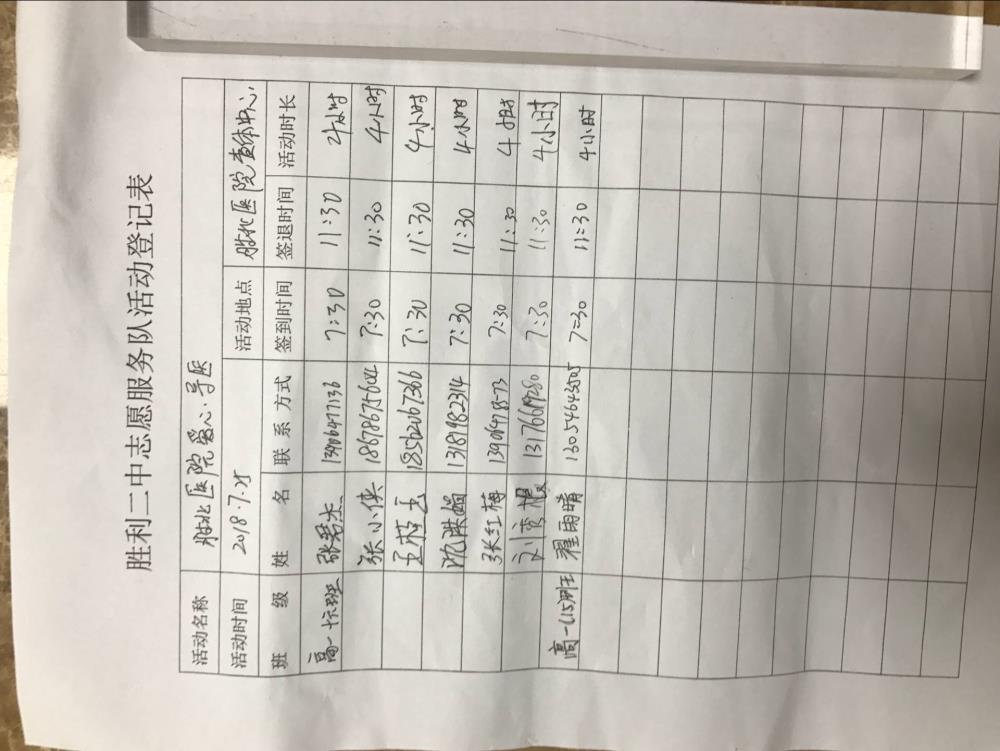 胜利二中志愿服务队活动登记表
活动名称 胜北医院爱心导医
活动时间 2018.7.25 活动地点 胜北医院查体中心
班级 姓名 联系方式 签到时间 签退时间 活动时长
高一十六班 张君杰 13906477136 7:30 11:30 4小时
张小侠 7:30 11:30 4小时
18562067366 7:30 11:30 4小时
沈洪娟 13181982314 7:30 11:30 4小时
张红梅 7:30 11:30 4小时
13176619280 7:30 11:30 4小时
高一(15)班 翟雨晴 13054643505 7:30 11:30 4小时